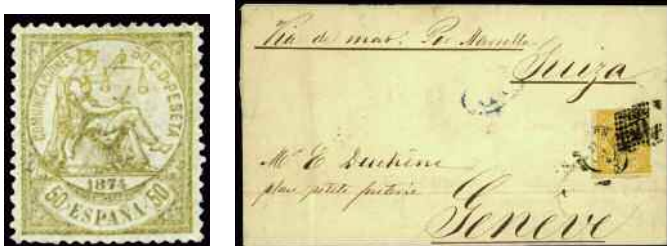 COMUNICACIONES
50 C. D. PESETA
1874
50 ESPAÑA 50
Via de mar. Por Marsella
Suiza
Mr E Duchêne
place petite fusterie
Genève